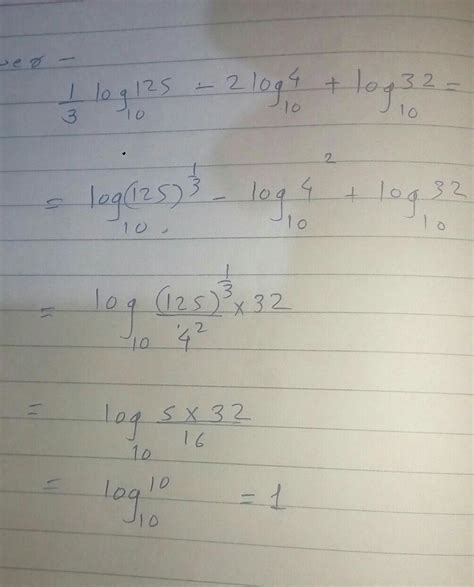 1/3 log₁₀ 125 - 2 log₁₀ 4 + log₁₀ 32 =
= log₁₀ (125)^(1/3) - log₁₀ 4² + log₁₀ 32
= log₁₀ (125)^(1/3)/4² × 32
= log₁₀ (5 × 32)/16
= log₁₀ 10 = 1